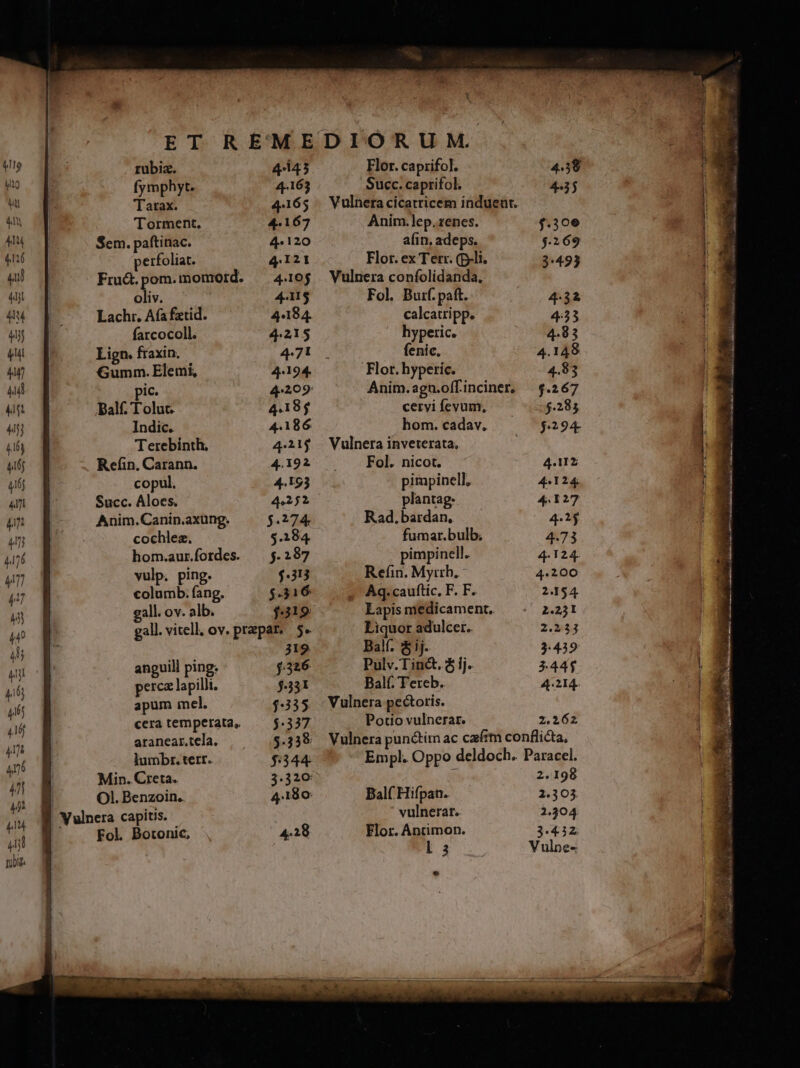 ET REMEDIORUM.
rubiæ. 4.143
ſymphyt. 4.163
Tarax. 4.165
Torment. 4.167
Sem. paſtinac. 4.120
perfoliat. 4.121
Fruct. pom. momord. 4.105
oliv. 4.115
Lachr. Aſa fœtid. 4.184
ſarcocoll. 4.215
Lign. fraxin. 4.71
Gumm. Elemi, 4.194
pic. 4.209
Balſ. Tolut. 4.185
Indic. 4.186
Terebinth. 4.215
Reſin. Carann. 4.192
copul. 4.193
Succ. Aloes. 4.252
Anim. Canin. axung. 5.274
cochleæ. 5.284
hom. aur. ſordes. 5.287
vulp. ping. 5.313
columb. ſang. 5.316
gall. ov. alb. 5.319
gall. vitell. ov. præpar. 5.
319
anguill ping. 5.326
percæ lapilli. 5.331
apum mel. 5.335
cera temperata, 5.337
aranear. tela. 5.338
lumbr. terr. 5.344
Min. Creta. 3.320
Ol. Benzoin. 4.180
Vulnera capitis.
Fol. Botonic, 4.28
Flor. caprifol. 4.38
Succ. caprifol. 4.35
Vulnera cicatricem induent.
Anim. lep. renes. 5.300
aſin. adeps. 5.269
Flor. ex Terr. ⊕-li. 3.493
Vulnera conſolidanda.
Fol. Burſ. paſt. 4.32
calcatripp. 4.33
hyperic. 4.83
ſenic. 4.148
Flor. hyperic. 4.83
Anim. agn. oſſ. inciner. 5.267
cervi ſevum, 5.285
hom. cadav. 5.294
Vulnera inveterata.
Fol. nicot. 4.112
pimpinell. 4.124
plantag. 4.127
Rad. bardan, 4.25
fumar. bulb. 4.73
pimpinell. 4.124
Reſin. Myrrh. 4.200
Aq. cauſtic. F. F. 2.154
Lapis medicament. 2.231
Liquor adulcer. 2.233
Balſ. ij. 3.439
Pulv. Tinct. ij. 3.445
Balſ. Tereb. 4.214
Vulnera pectoris.
Potio vulnerar. 2.262
Vulnera punctim ac cæſim conflicta.
Empl. Oppo deldoch. Paracel.
2.198
Balſ Hiſpan. 2.303
vulnerar. 2.304
Flor. Antimon. 3.432
l 3 Vulne-